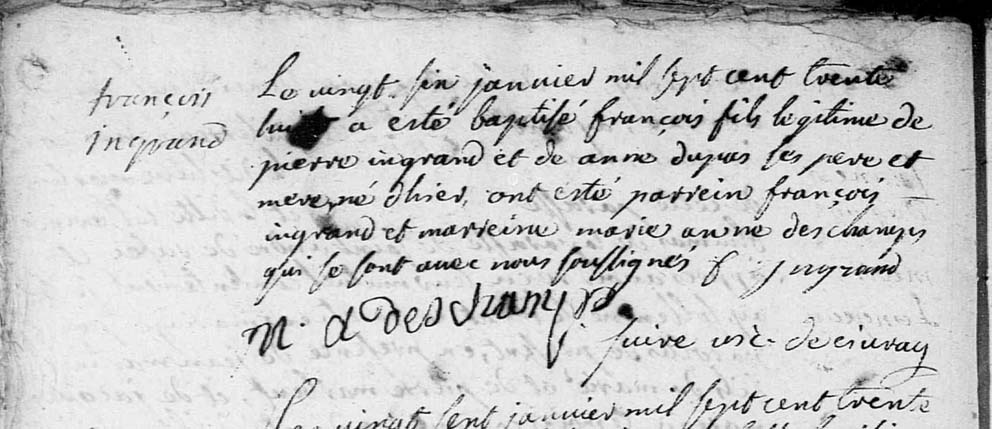 françois
ingrand
Le vingt six janvier mil sept cent trente
huit a esté baptisé françois fils legitime de
pierre ingrand et de anne dupas ses pere et
mere, né d'hier, ont esté parrein françois
ingrand et marreine marie anne deschamps
qui se sont avec nous soussignés f ingrand
M. A Deschamps
vic. de civray
Le vingt sept janvier mil sept cent trente